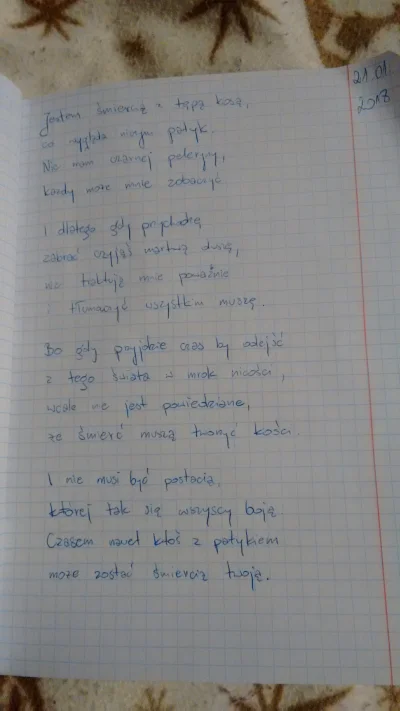 21.01.
2018
Jestem śmiercią z tępą kosą,
co wygląda niczym patyk.
Nie mam czarnej peleryny,
każdy może mnie zobaczyć.
I dlatego gdy przychodzę
zabrać czyjąś martwą duszę,
nie traktują mnie poważnie
i tłumaczyć wszystkim muszę.
Bo gdy przyjdzie czas by odejść
z tego świata w mrok nicości,
wcale nie jest powiedziane,
że śmierć muszą tworzyć kości.
I nie musi być postacią,
której tak się wszyscy boją.
Czasem nawet ktoś z patykiem
może zostać śmiercią twoją.